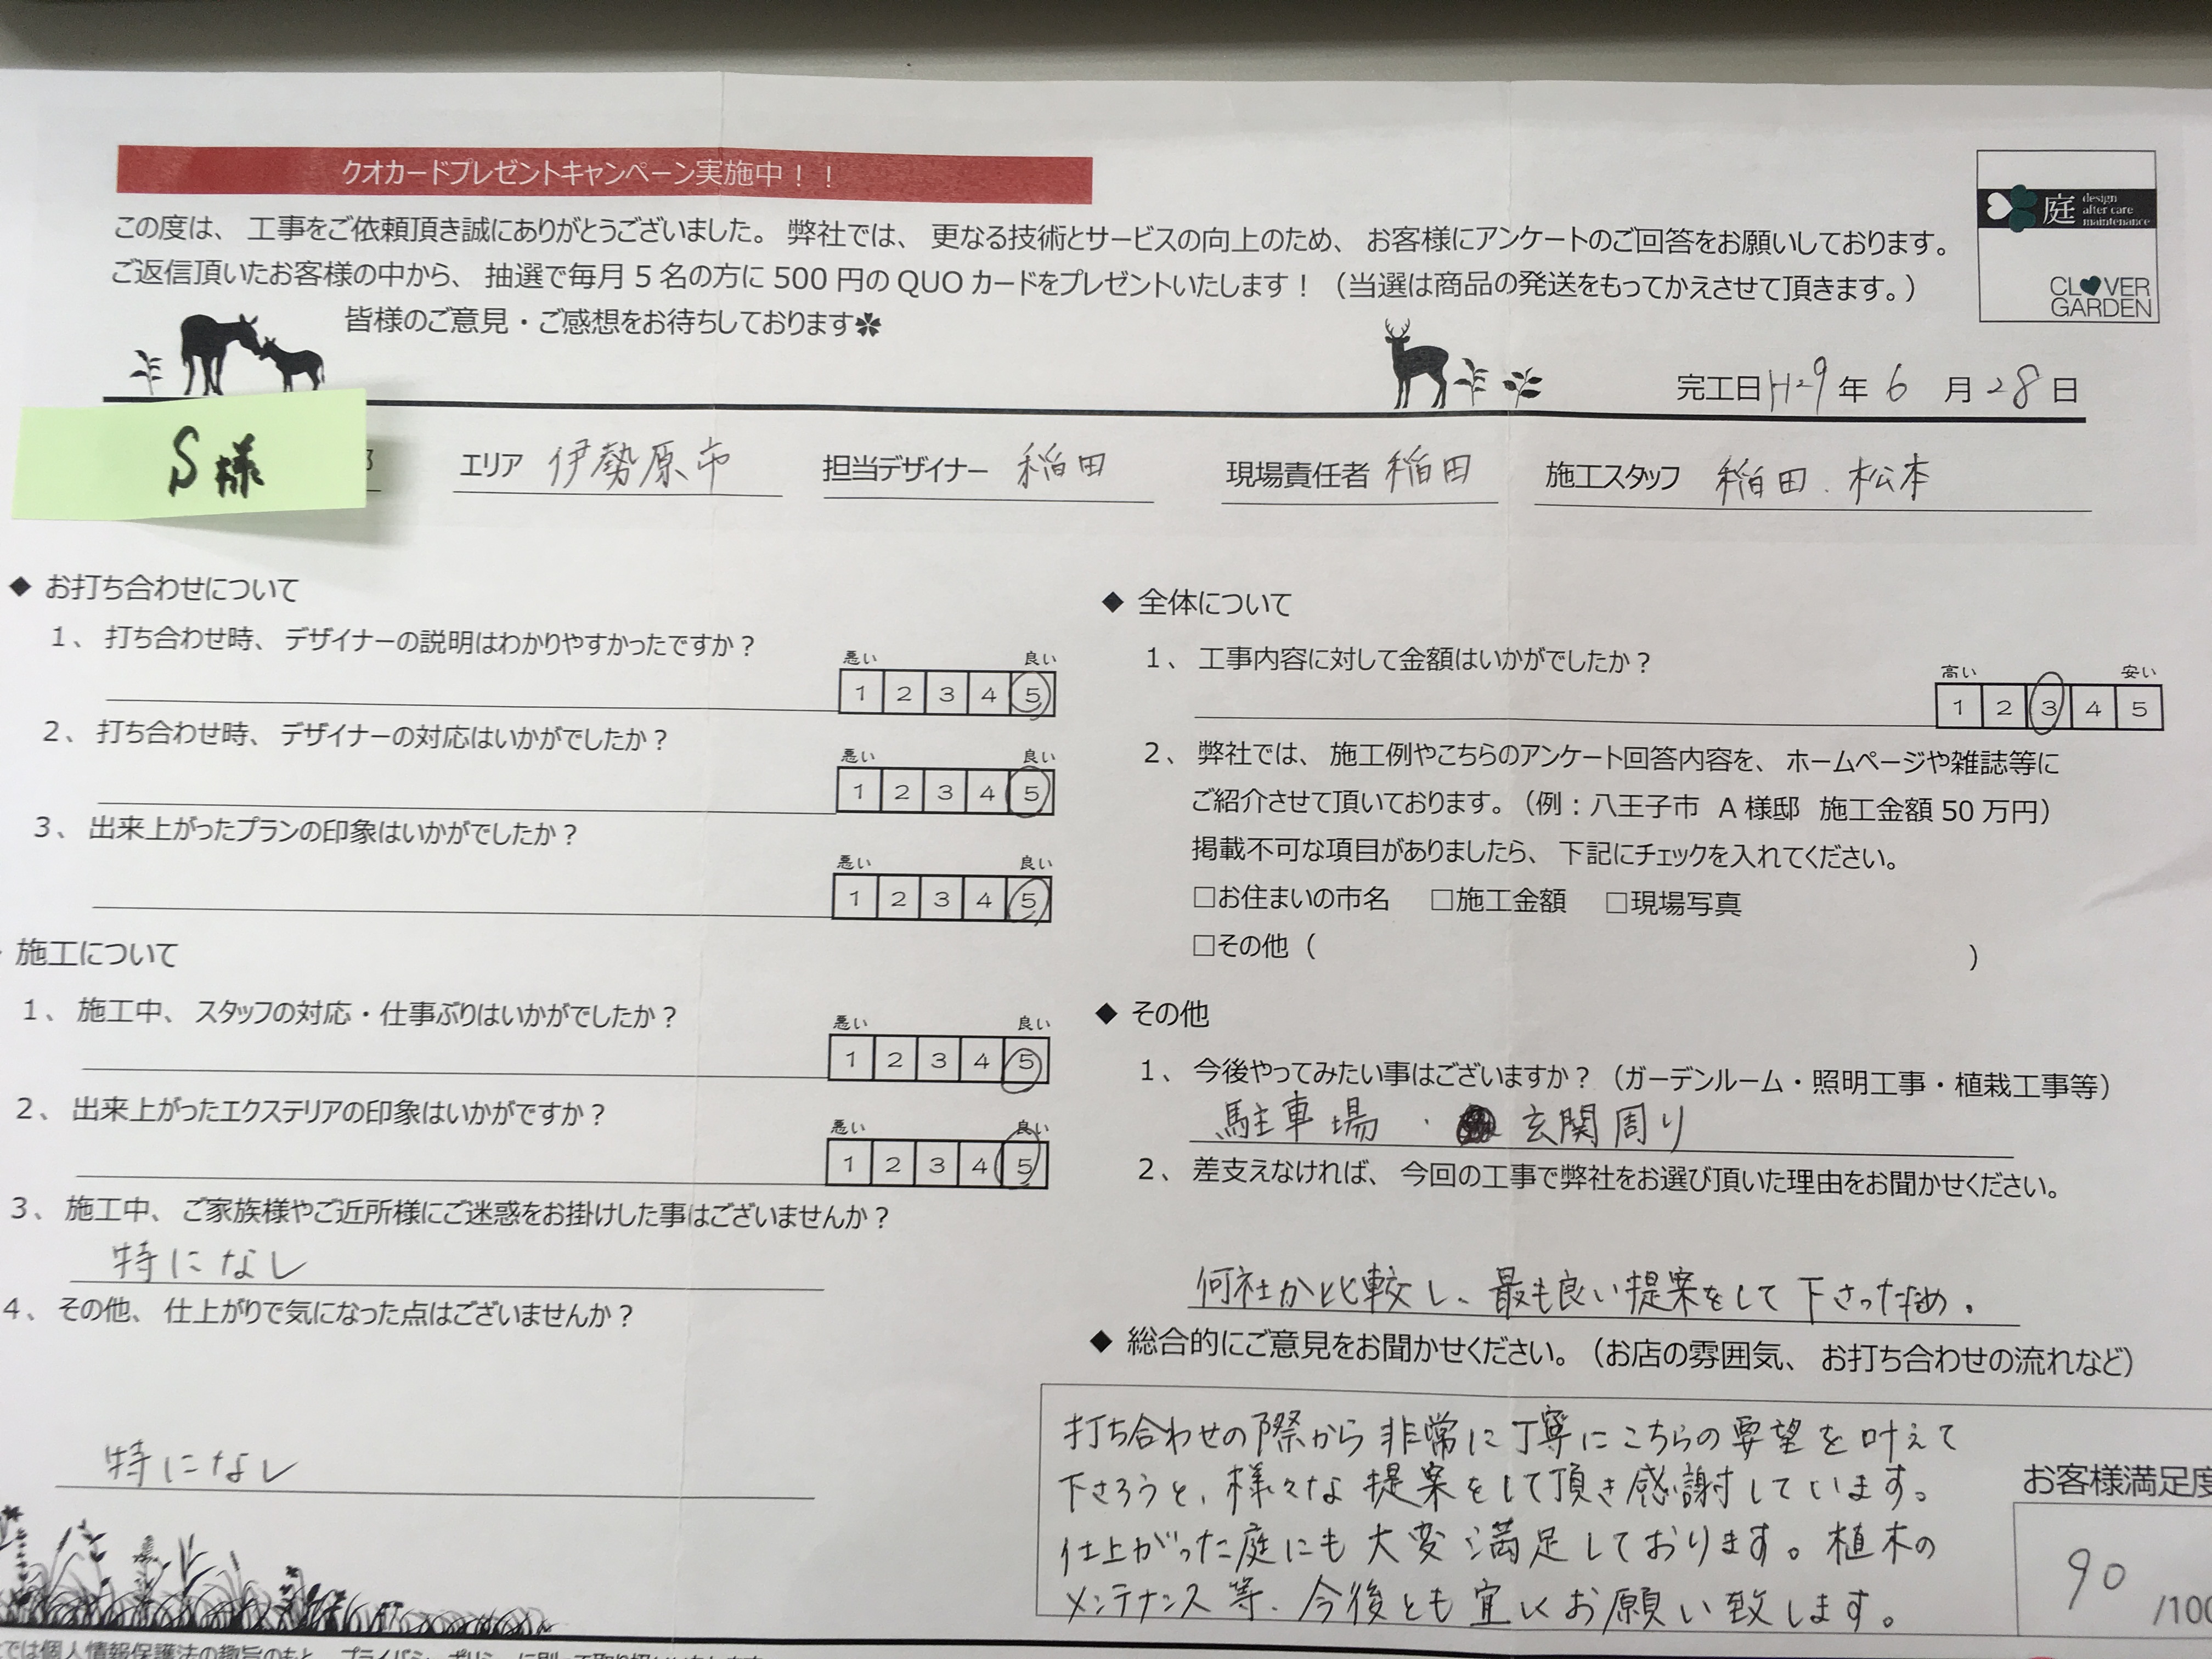 クオカードプレゼントキャンペーン実施中！！
この度は、工事をご依頼頂き誠にありがとうございました。弊社では、更なる技術とサービスの向上のため、お客様にアンケートのご回答をお願いしております。
ご返信頂いたお客様の中から、抽選で毎月5名の方に500円のQUOカードをプレゼントいたします！（当選は商品の発送をもってかえさせて頂きます。）
皆様のご意見・ご感想をお待ちしております
庭 design after care maintenance
CLOVER GARDEN
完工日 H29年 6月 28日
S様
エリア 伊勢原市 担当デザイナー 稲田 現場責任者 稲田 施工スタッフ 稲田.松本
◆ お打ち合わせについて
1、打ち合わせ時、デザイナーの説明はわかりやすかったですか？
悪い 良い
1 2 3 4 5
2、打ち合わせ時、デザイナーの対応はいかがでしたか？
悪い 良い
1 2 3 4 5
3、出来上がったプランの印象はいかがでしたか？
悪い 良い
1 2 3 4 5
施工について
1、施工中、スタッフの対応・仕事ぶりはいかがでしたか？
悪い 良い
1 2 3 4 5
2、出来上がったエクステリアの印象はいかがですか？
悪い 良い
1 2 3 4 5
3、施工中、ご家族様やご近所様にご迷惑をお掛けした事はございませんか？
特になし
4、その他、仕上がりで気になった点はございませんか？
特になし
◆ 全体について
1、工事内容に対して金額はいかがでしたか？
高い 安い
1 2 3 4 5
2、弊社では、施工例やこちらのアンケート回答内容を、ホームページや雑誌等に
ご紹介させて頂いております。（例：八王子市 A様邸 施工金額50万円）
掲載不可な項目がありましたら、下記にチェックを入れてください。
□お住まいの市名 □施工金額 □現場写真
□その他（ ）
◆ その他
1、今後やってみたい事はございますか？（ガーデンルーム・照明工事・植栽工事等）
駐車場・玄関周り
2、差支えなければ、今回の工事で弊社をお選び頂いた理由をお聞かせください。
何社か比較し、最も良い提案をして下さった為。
◆ 総合的にご意見をお聞かせください。（お店の雰囲気、お打ち合わせの流れなど）
打ち合わせの際から非常に丁寧にこちらの要望を叶えて
下さろうと、様々な提案をして頂き感謝しています。
仕上がった庭にも大変満足しております。植木の
メンテナンス等、今後とも宜しくお願い致します。
お客様満足度
90 /100
では個人情報保護法の趣旨のもと、プライバシーポリシーに則って取り扱いいたします